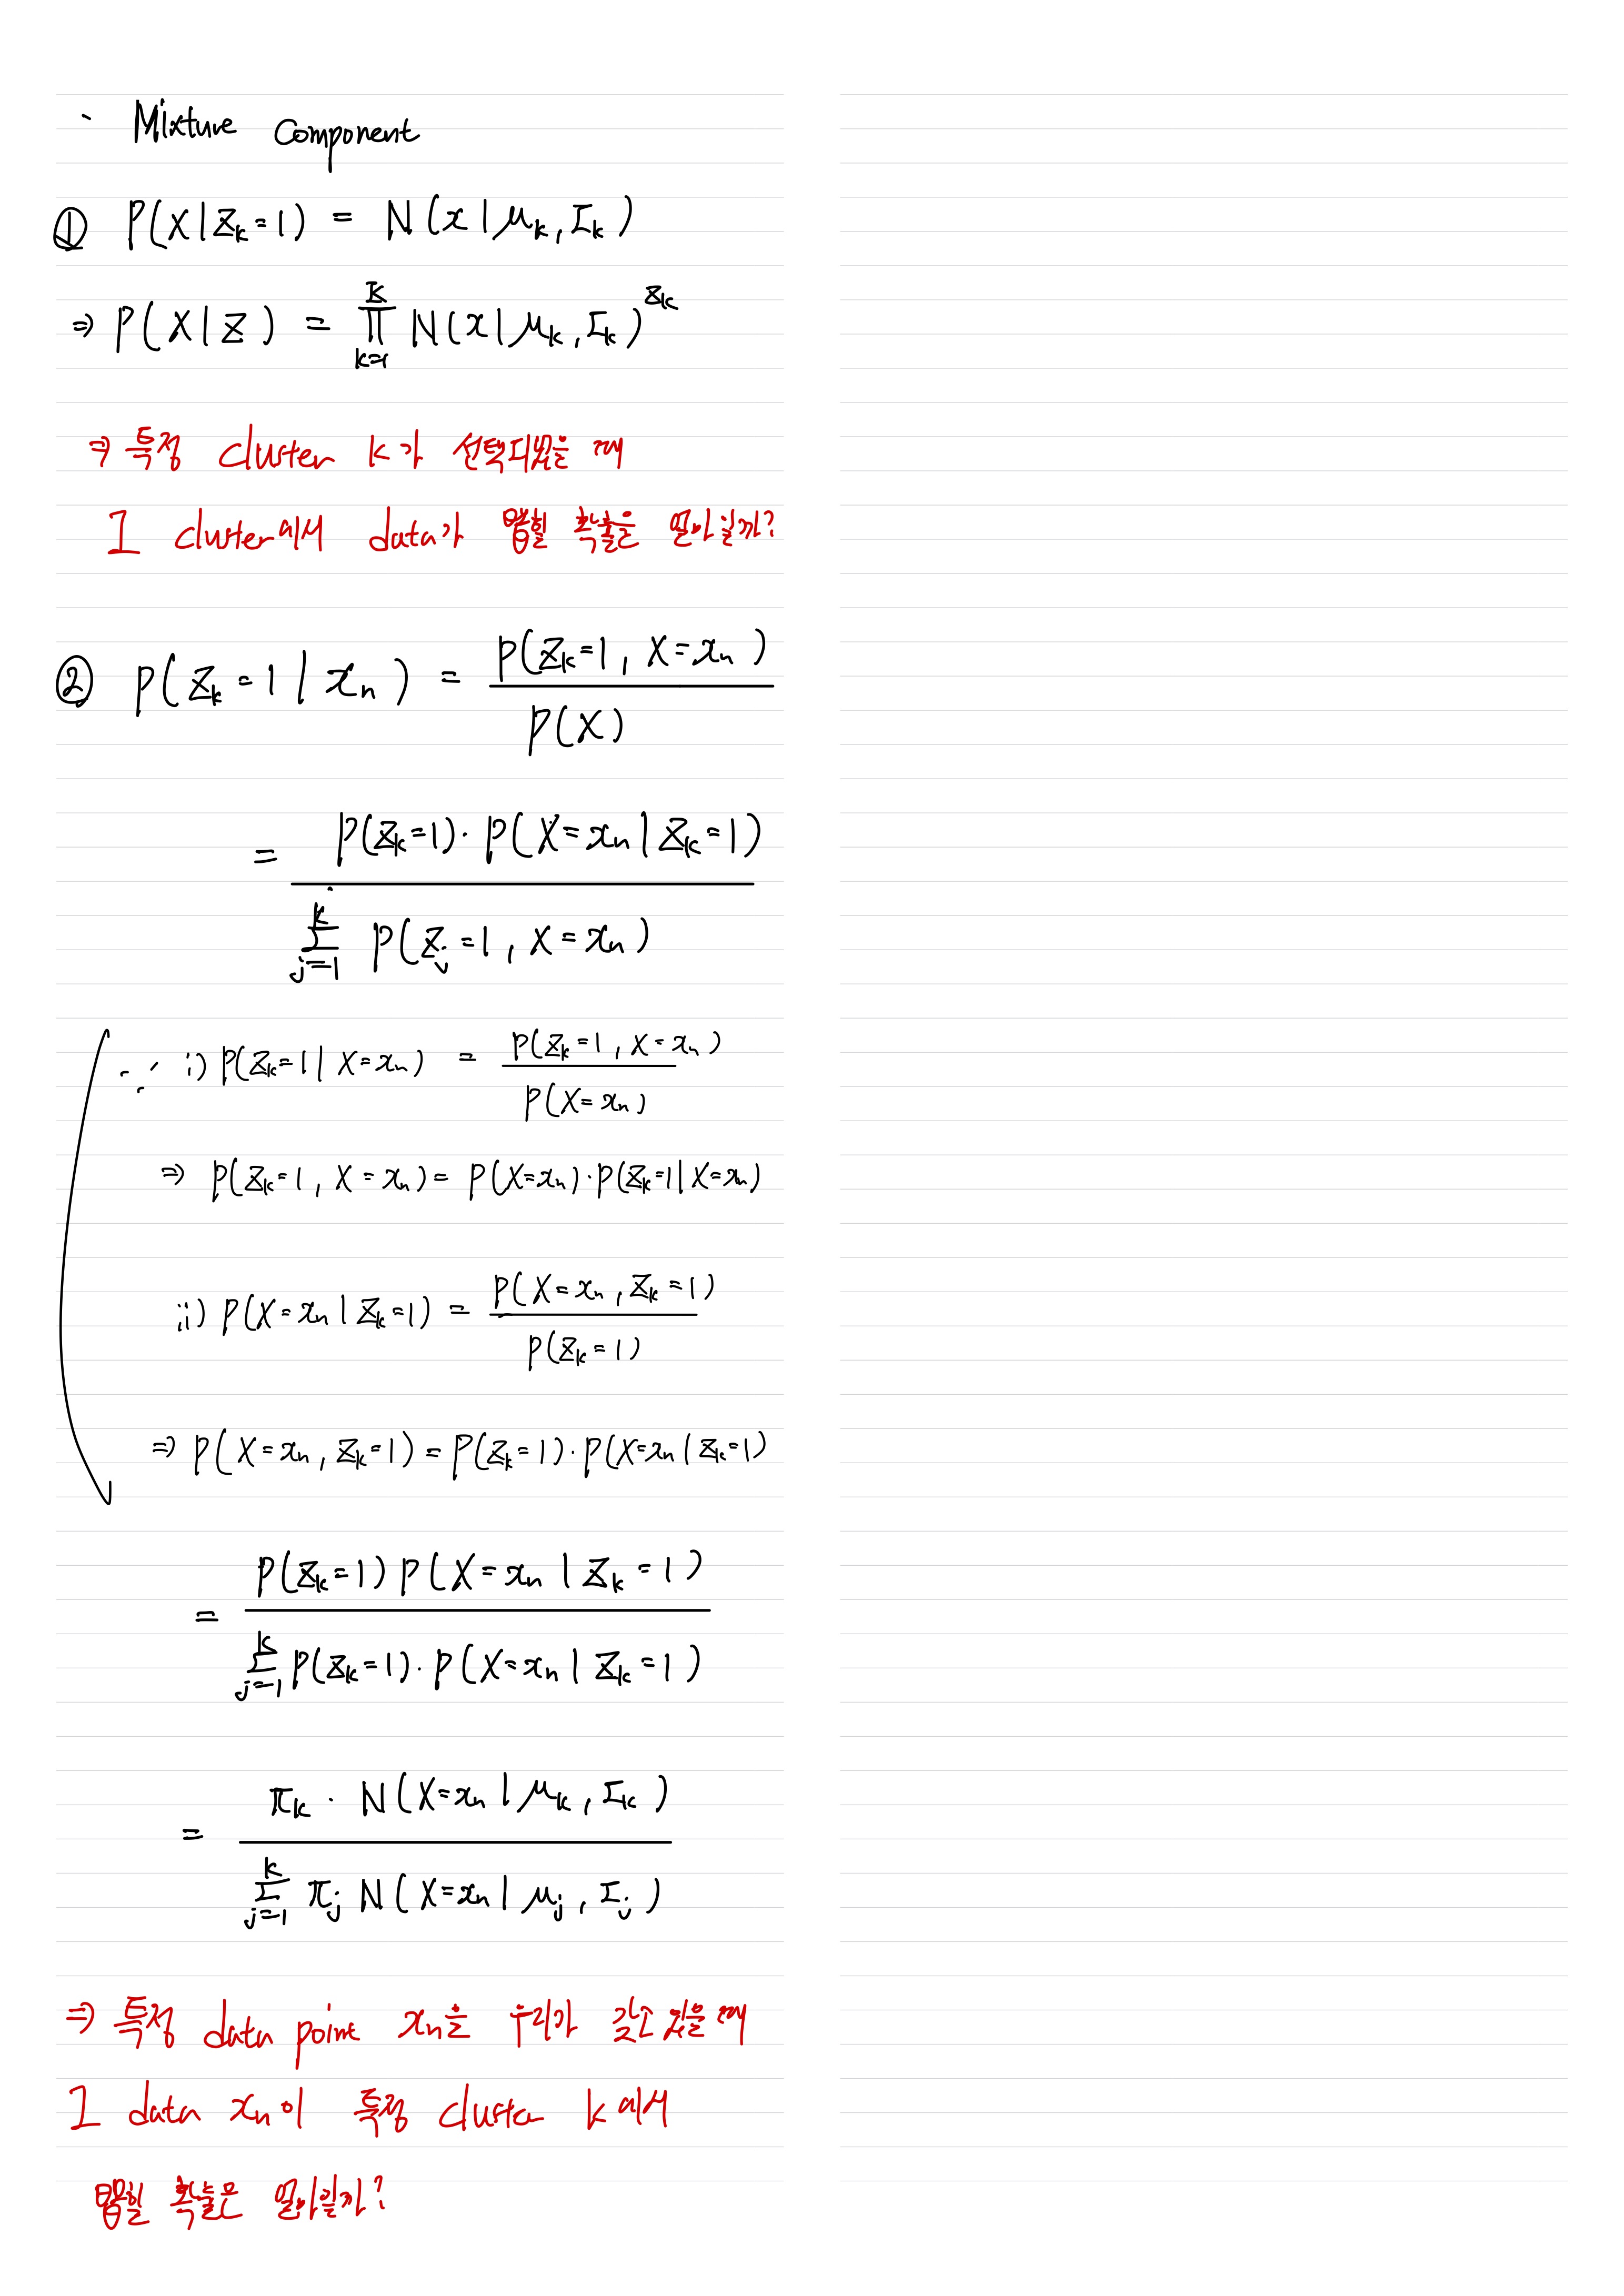 · Mixture Component
① P(X|Z_k=1) = N(x|μ_k, Σ_k)
⇒ P(X|Z) = ∏_{k=1}^{K} N(x|μ_k, Σ_k)^{Z_k}
⇒ 특정 cluster K가 선택되었을 때
그 cluster에서 data가 뽑힐 확률은 얼마일까?
② P(Z_k=1|x_n) = P(Z_k=1, X=x_n) / P(X)
= P(Z_k=1)·P(X=x_n|Z_k=1) / ∑_{j=1}^{K} P(Z_j=1, X=x_n)
∵ i) P(Z_k=1|X=x_n) = P(Z_k=1, X=x_n) / P(X=x_n)
⇒ P(Z_k=1, X=x_n) = P(X=x_n)·P(Z_k=1|X=x_n)
ii) P(X=x_n|Z_k=1) = P(X=x_n, Z_k=1) / P(Z_k=1)
⇒ P(X=x_n, Z_k=1) = P(Z_k=1)·P(X=x_n|Z_k=1)
= P(Z_k=1) P(X=x_n|Z_k=1) / ∑_{j=1}^{K} P(Z_k=1)·P(X=x_n|Z_k=1)
= π_k · N(X=x_n|μ_k, Σ_k) / ∑_{j=1}^{K} π_j N(X=x_n|μ_j, Σ_j)
⇒ 특정 data point x_n을 우리가 갖고 있을 때
그 data x_n이 특정 cluster k에서
뽑힐 확률은 얼마일까?